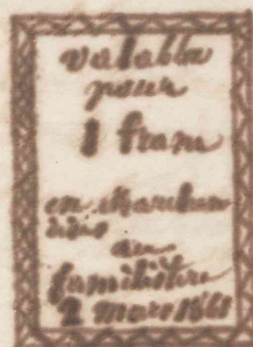 valable
pour
1 franc
en marchan
dises
au
familistère
2 mars 1861